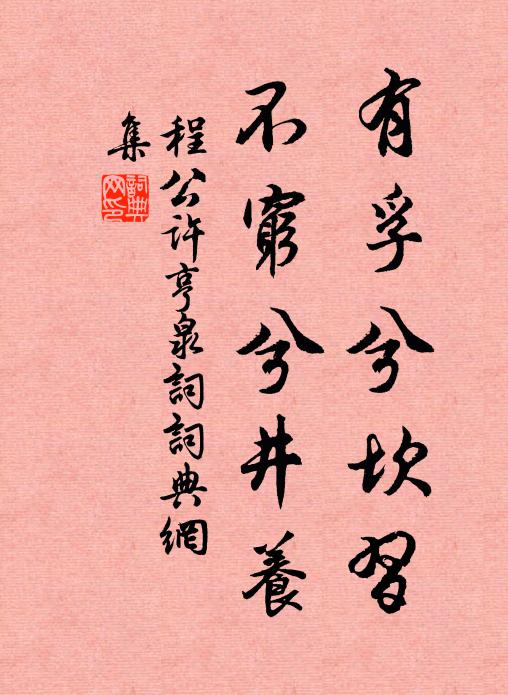 有孚兮坎習
不窮兮井養
程公許亨泉詞詞典網
集
詞典網印